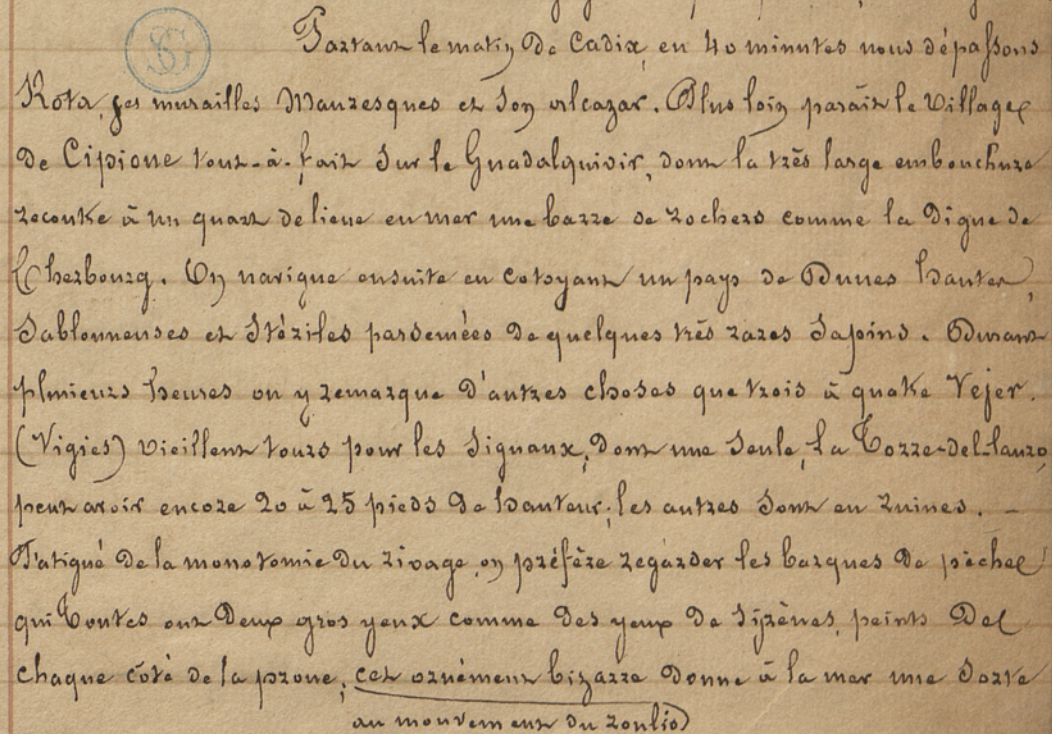 Partant le matin de Cadix, en 40 minutes nous dépassons
Rota, ses murailles Mauresques et son alcazar. Plus loin paraît le village
de Cipione tout-à-fait sur le Guadalquivir, dont la très large embouchure
recontre à un quart de lieue en mer une barre de rochers comme la Digue de
Cherbourg. On navigue ensuite en cotoyant un pays de Dunes hautes,
Sablonneuses et Stériles parsemées de quelques très rares Sapins. Durant
plusieurs heures on y remarque d'autres choses que trois à quatre Vejer.
(Vigies) vieillent tours pour les Signaux, dont une Seule, la Torre-del-
peut avoir encore 20 à 25 pieds de hauteur; les autres sont en ruines. –
Fatigué de la monotomie du rivage on préfère regarder les barques de pêche
qui toutes ont Deux gros yeux comme des yeux de Sirènes, peints De
chaque côté de la proue; cet ornément bizarre donne à la mer une sorte
au mouvement du roulis